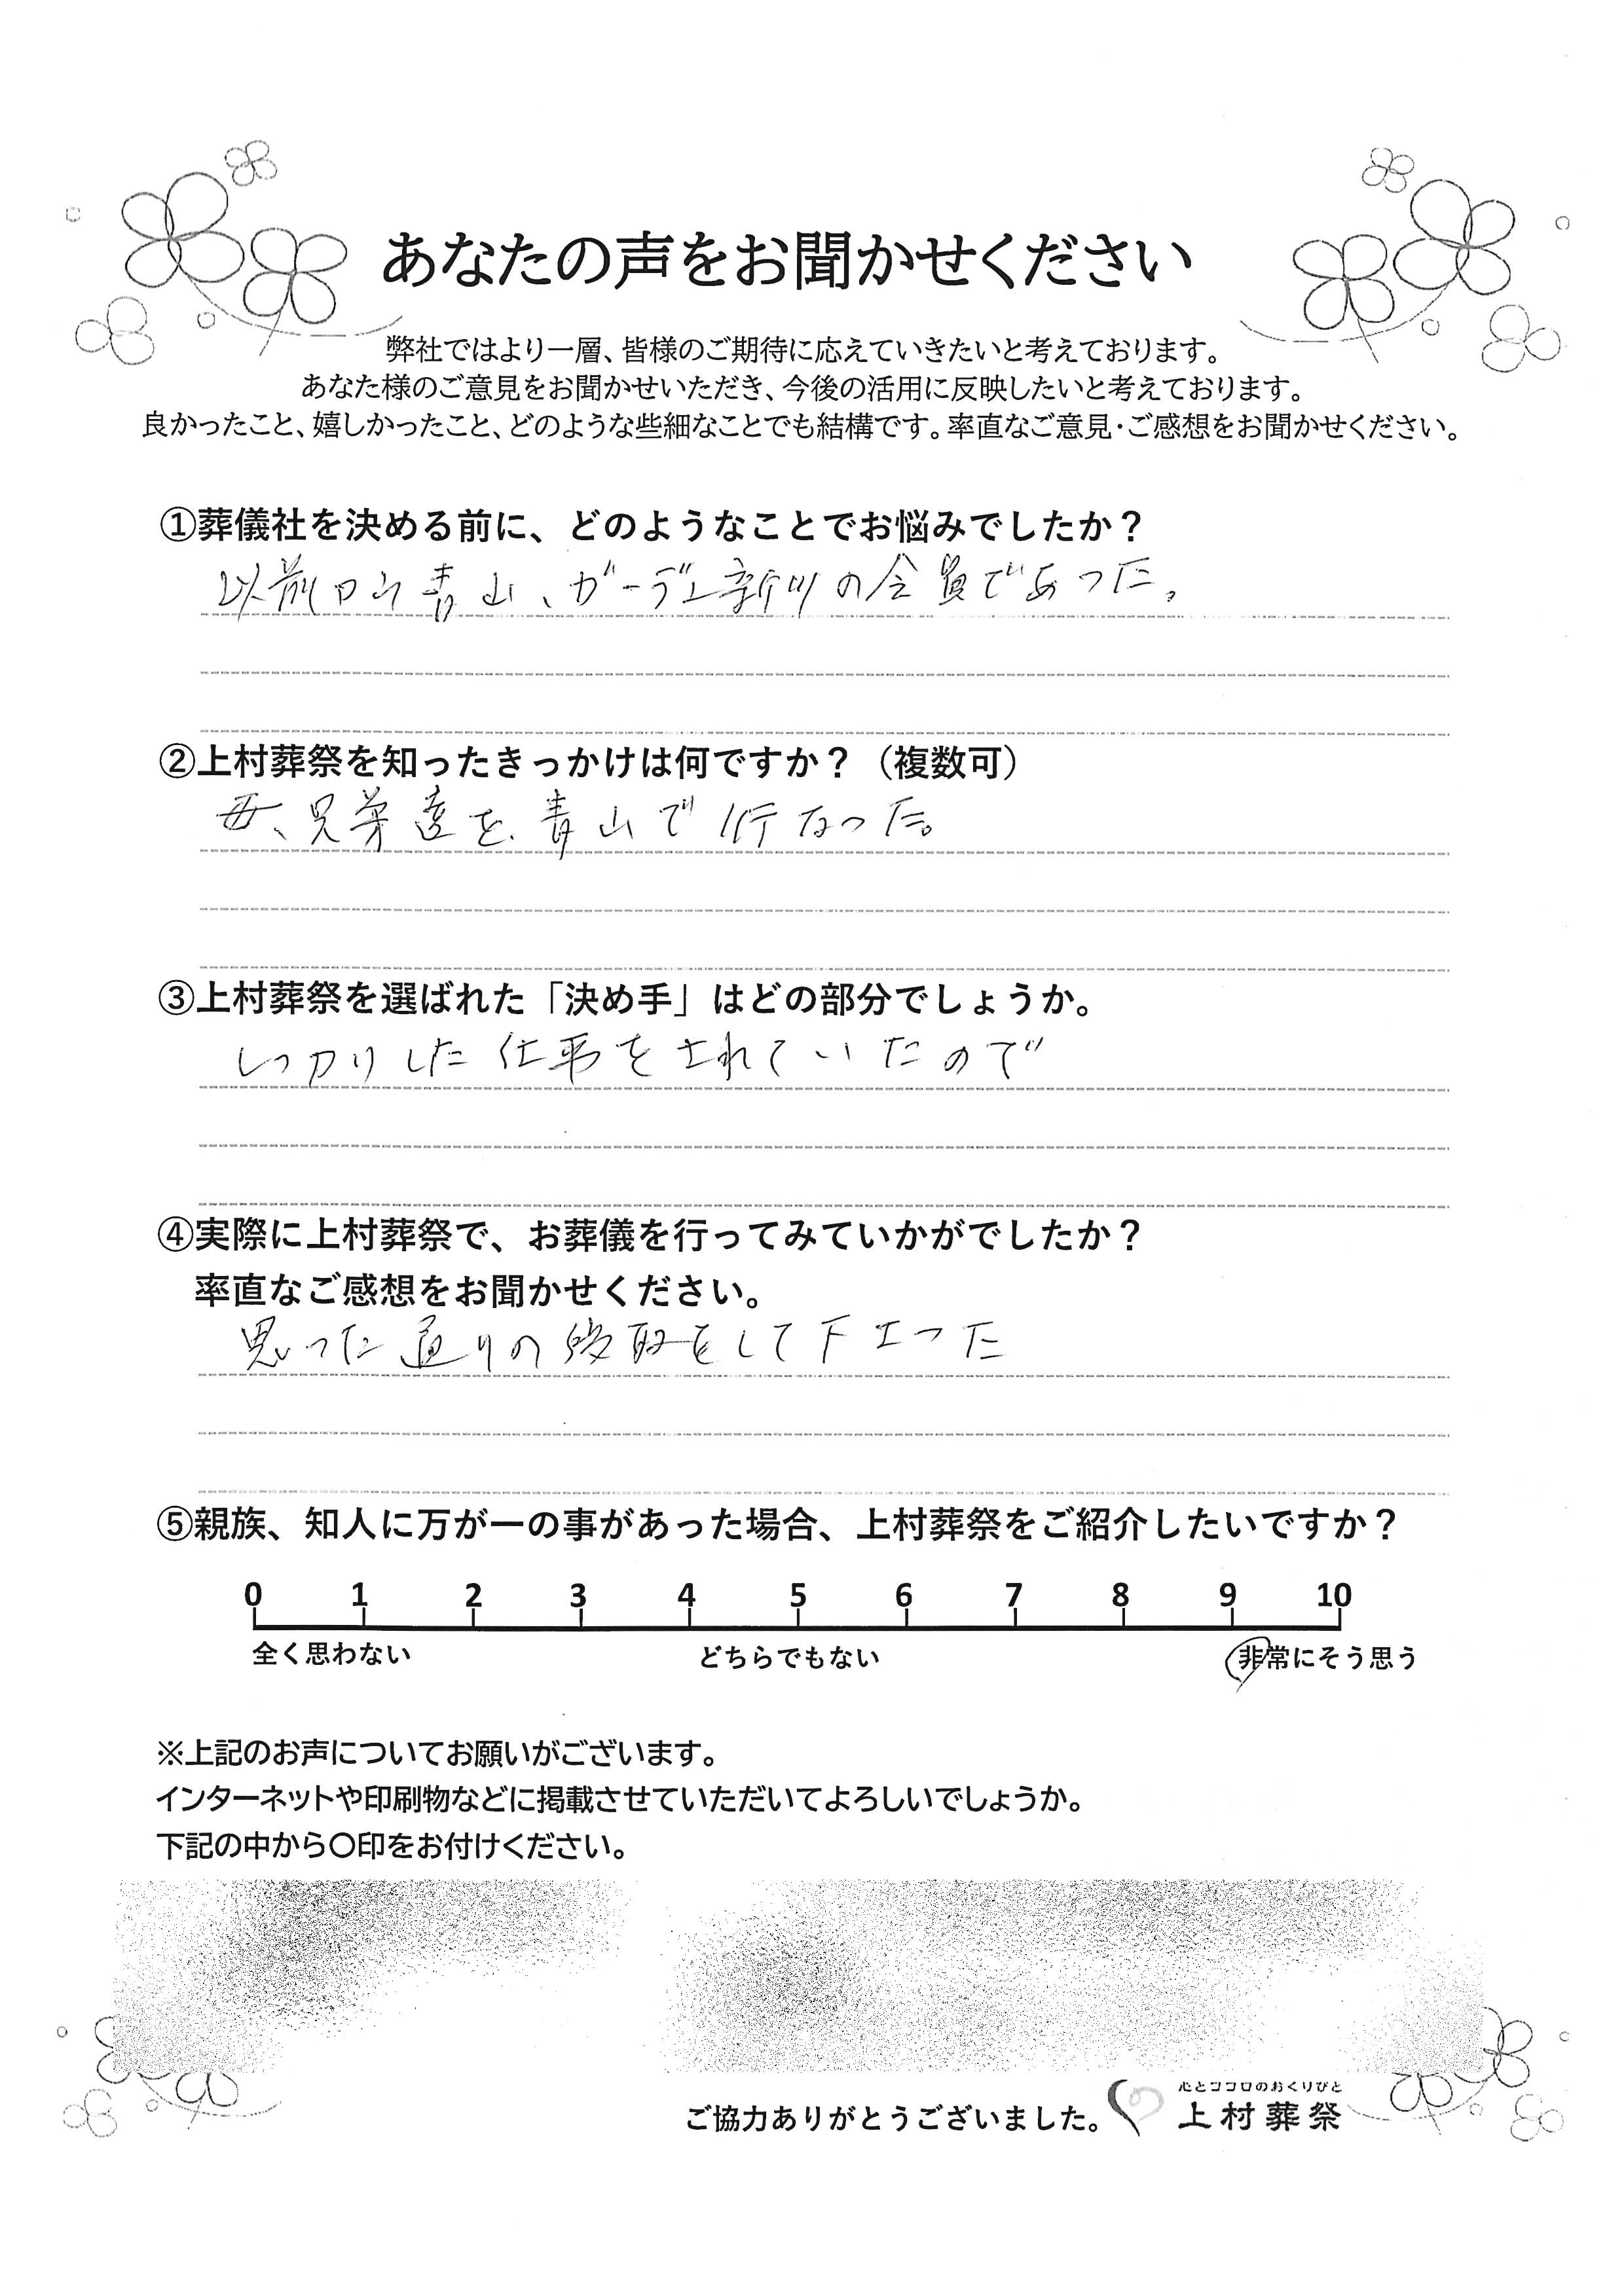 あなたの声をお聞かせください
弊社ではより一層、皆様のご期待に応えていきたいと考えております。
あなた様のご意見をお聞かせいただき、今後の活用に反映したいと考えております。
良かったこと、嬉しかったこと、どのような些細なことでも結構です。率直なご意見・ご感想をお聞かせください。
①葬儀社を決める前に、どのようなことでお悩みでしたか？
以前から青山、ガーデン新川の会員であった。
②上村葬祭を知ったきっかけは何ですか？（複数可）
母、兄弟達を、青山で行なった。
③上村葬祭を選ばれた「決め手」はどの部分でしょうか。
しっかりした仕事をされていたので
④実際に上村葬祭で、お葬儀を行ってみていかがでしたか？
率直なご感想をお聞かせください。
思った通りの をして下さった
⑤親族、知人に万が一の事があった場合、上村葬祭をご紹介したいですか？
0 1 2 3 4 5 6 7 8 9 10
全く思わない どちらでもない 非常にそう思う
※上記のお声についてお願いがございます。
インターネットや印刷物などに掲載させていただいてよろしいでしょうか。
下記の中から〇印をお付けください。
心とココロのおくりびと
ご協力ありがとうございました。 上村葬祭